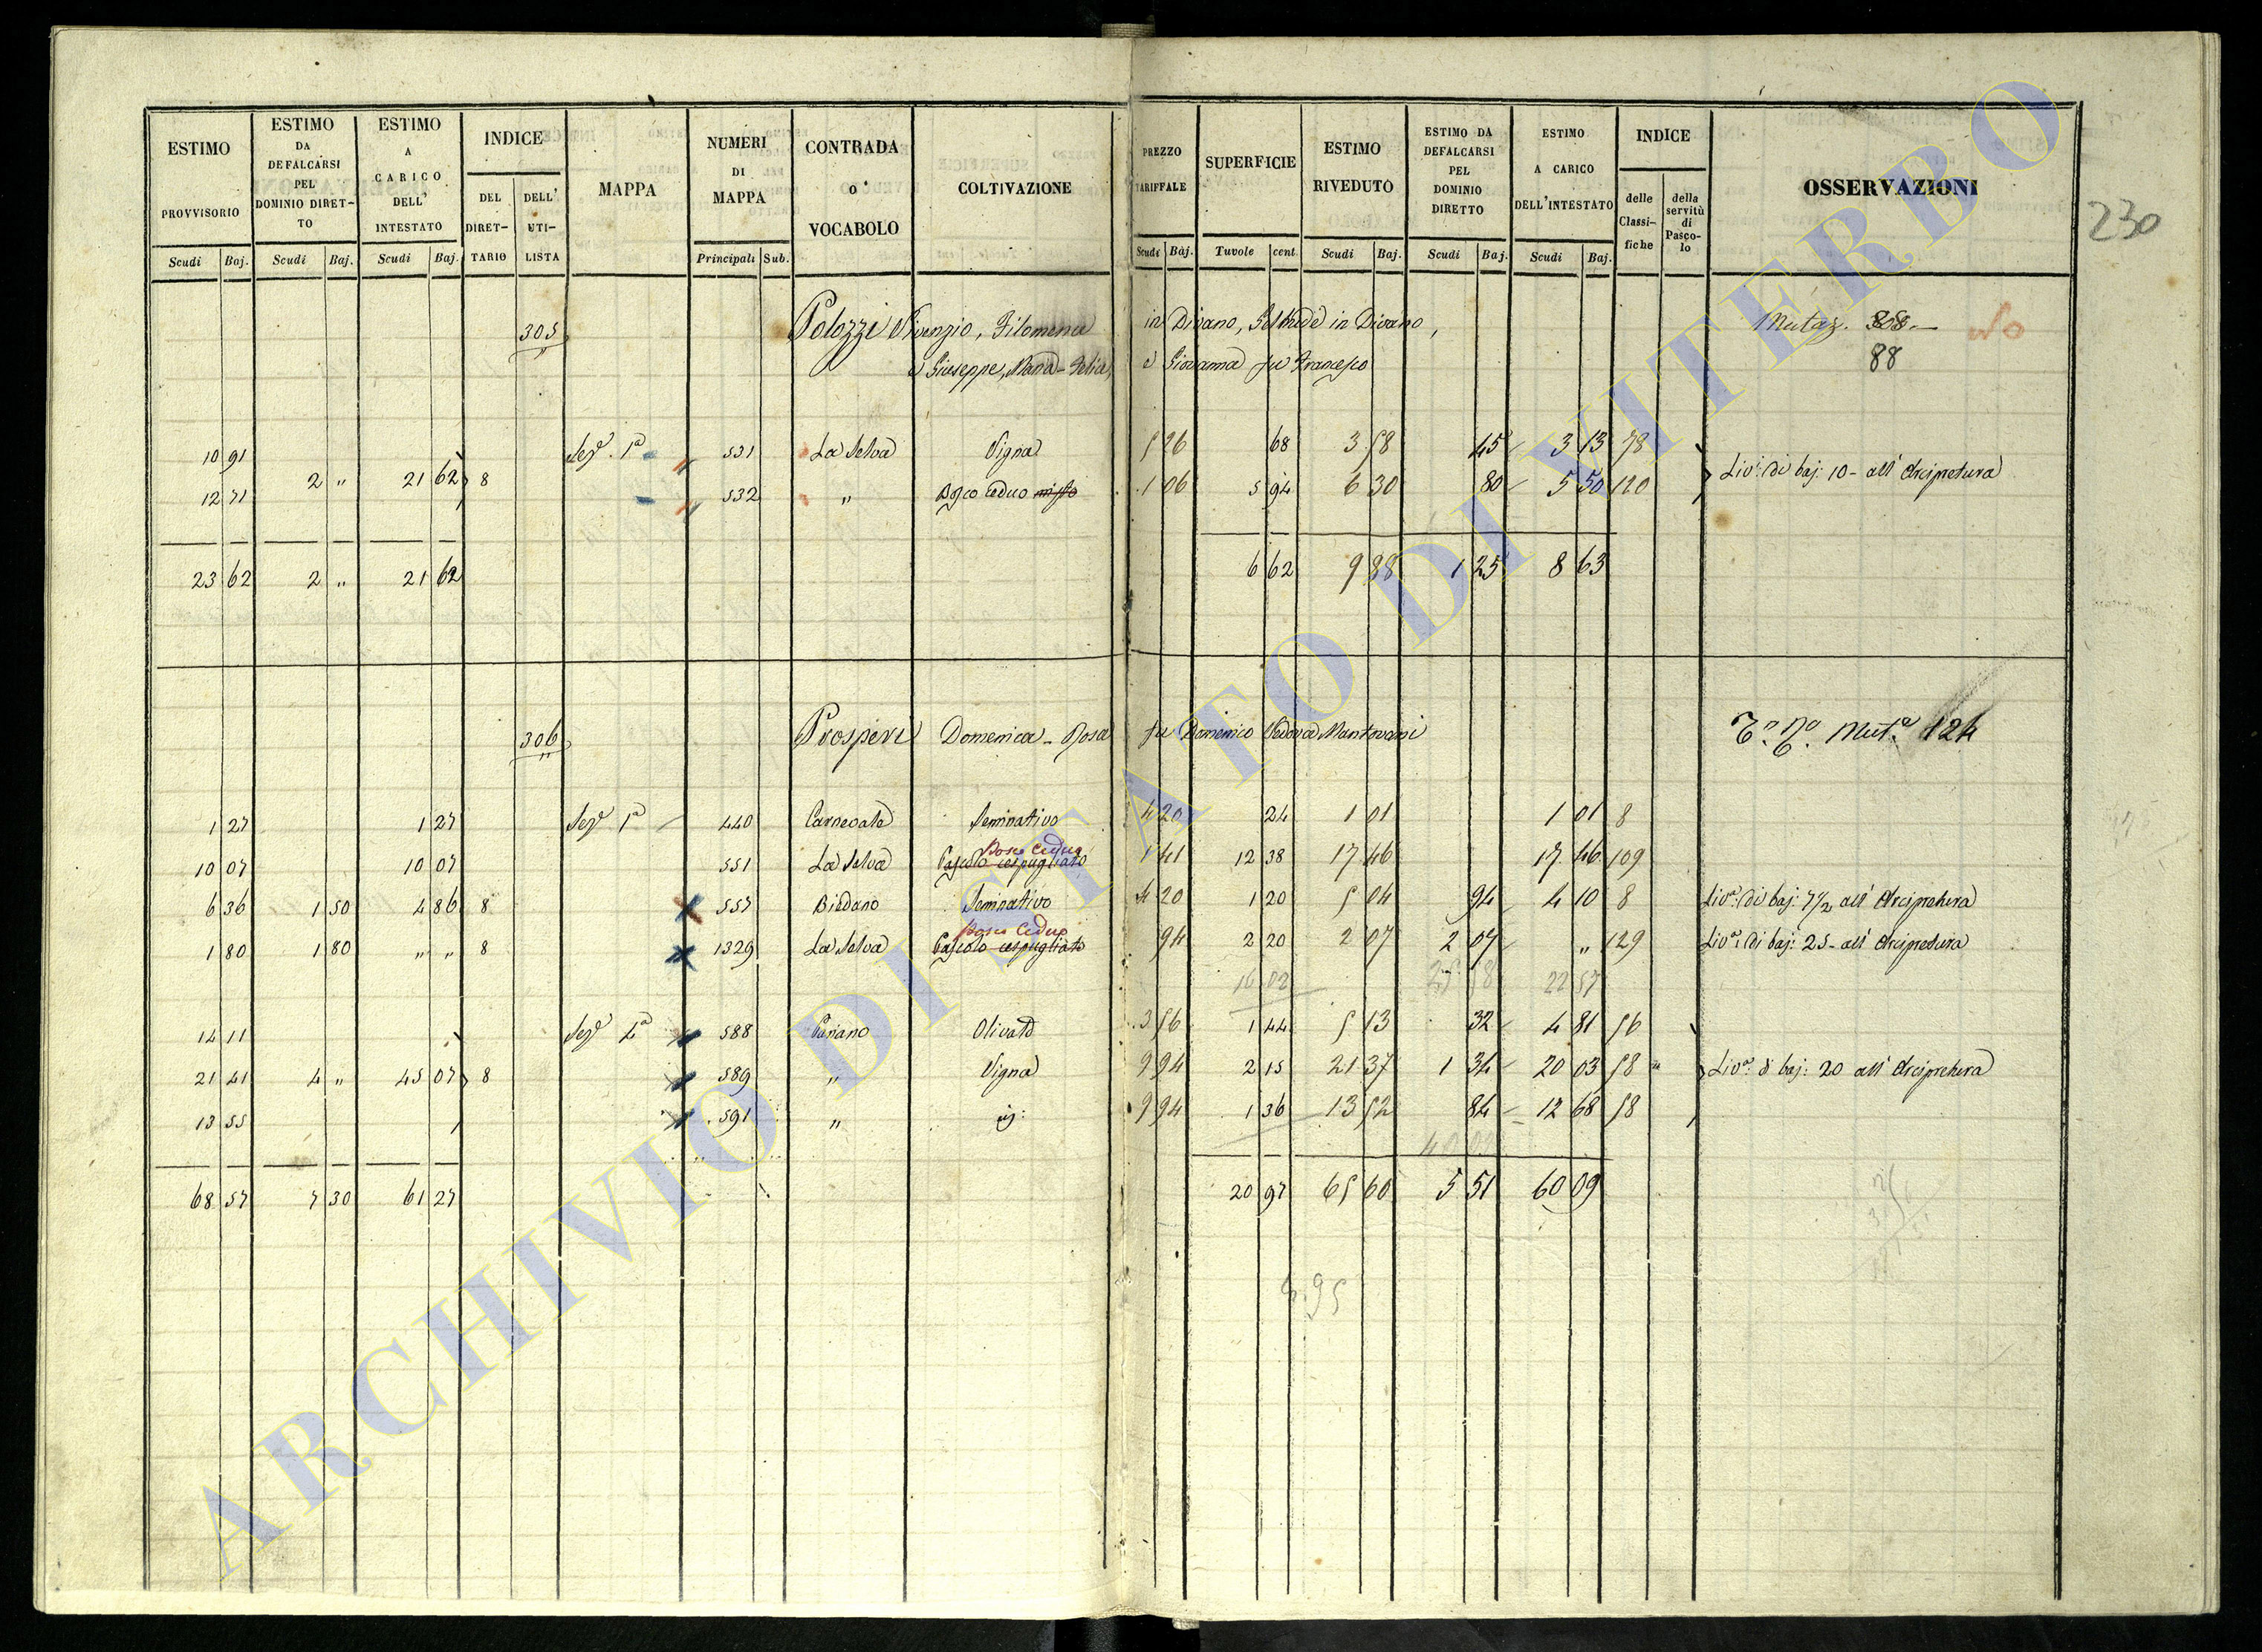 ESTIMO PROVVISORIO Scudi Baj.
ESTIMO DA DEFALCARSI PEL DOMINIO DIRET-TO Scudi Baj.
ESTIMO A CARICO DELL' INTESTATO Scudi Baj.
INDICE DEL DIRET-TARIO DELL' UTI-LISTA
MAPPA
NUMERI DI MAPPA Principali Sub.
CONTRADA o' VOCABOLO
COLTIVAZIONE
PREZZO TARIFFALE Scudi Baj.
SUPERFICIE Tavole cent.
ESTIMO RIVEDUTO Scudi Baj.
ESTIMO DA DEFALCARSI PEL DOMINIO DIRETTO Scudi Baj.
ESTIMO A CARICO DELL'INTESTATO Scudi Baj.
INDICE delle Classi-fiche della servitù di Pasco-lo
OSSERVAZIONI
230
305 Polozzi Vivenzio, Filomena in Divano, in Divano, Mutaz. 308 No
e Giuseppe, Maria-Felice, e Giovanna fu Francesco 88
10 91 Sez.e 1a 531 La Selva Vigna 5 26 68 3 58 45 3 13 78
2 " 21 62 8 Liv.o di baj: 10 - all' Arcipretura
12 71 532 " Bosco ceduo misto 1 06 5 94 6 30 80 5 50 120
23 62 2 " 21 62 6 62 9 88 1 25 8 63
306 Prosperi Domenica-Rosa fu Domenico Vedova Mantovani Mut.e 124
1 27 1 27 Sez.e 1a 440 Carnevale Seminativo 4 20 24 1 01 1 01 8
Bosco Ceduo
10 07 10 07 551 La Selva Pascolo cespugliato 1 41 12 38 17 46 17 46 109
6 36 1 50 4 86 8 557 Biedano Seminativo 4 20 1 20 5 04 94 4 10 8 Liv.o di baj: 7 1/2 all' Arcipretura
Bosco Ceduo
1 80 1 80 " " 8 1329 La Selva Pascolo cespugliato 94 2 20 2 07 2 07 " 129 Liv.o di baj: 25 - all' Arcipretura
16 02 22 57
14 11 Sez.e 2a 588 Pariano Olivato 3 56 1 44 5 13 32 4 81 56
21 41 4 " 45 07 8 589 " Vigna 9 94 2 15 21 37 1 34 20 03 58 Liv.o di baj: 20 all' Arcipretura
13 55 591 " id: 9 94 1 36 13 52 84 12 68 58
68 57 7 30 61 27 20 97 65 60 5 51 60 09
4.95
ARCHIVIO DI STATO DI VITERBO